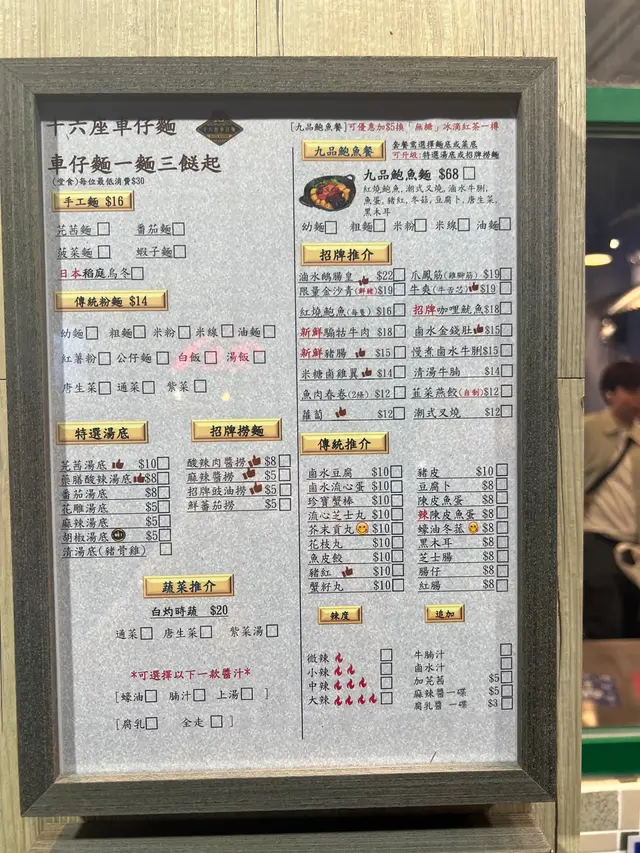 十六座車仔麵
車仔麵一麵三餸起
(堂食)每位最低消費$30
手工麵 $16
芫茜麵 番茄麵
菠菜麵 蝦子麵
日本稻庭烏冬
傳統粉麵 $14
幼麵 粗麵 米粉 米線 油麵
紅薯粉 公仔麵 白飯 湯飯
唐生菜 通菜 紫菜
特選湯底
芫茜湯底 $10
藥膳酸辣湯底 $8
番茄湯底 $8
花雕湯底 $5
麻辣湯底 $5
胡椒湯底 $5
清湯底(豬骨雞)
招牌撈麵
酸辣肉醬撈 $8
麻辣醬撈 $5
招牌豉油撈 $5
鮮番茄撈 $5
蔬菜推介
白灼時蔬 $20
通菜 唐生菜 紫菜湯
*可選擇以下一款醬汁*
[蠔油 腩汁 上湯 ]
[腐乳 全走 ]
[九品鮑魚餐]可優惠加$5換「無糖」冰滴紅茶一樽
九品鮑魚餐
套餐需選擇麵底或菜底
可升級:特選湯底或招牌撈麵
九品鮑魚麵 $68
紅燒鮑魚,潮式叉燒,滷水牛脷,
魚蛋,豬紅,冬菇,豆腐卜,唐生菜,
黑木耳
幼麵 粗麵 米粉 米線 油麵
招牌推介
滷水鵝腸皇 $22 爪鳳筋(雞腳筋) $19
限量金沙青(鮮豬) $19 牛爽(牛舌芯) $19
紅燒鮑魚(每隻) $16 招牌咖哩魷魚 $18
新鮮騸牯牛肉 $18 鹵水金錢肚 $15
新鮮豬腸 $15 慢煮鹵水牛脷 $15
米糠鹵雞翼 $14 清湯牛腩 $14
魚肉春卷(2條) $12 韮菜燕餃(自制) $12
蘿蔔 $12 潮式叉燒 $12
傳統推介
鹵水豆腐 $10 豬皮 $10
鹵水流心蛋 $10 豆腐卜 $8
珍寶蟹棒 $10 陳皮魚蛋 $8
流心芝士丸 $10 辣陳皮魚蛋 $8
芥末貢丸 $10 蠔油冬菇 $8
花枝丸 $10 黑木耳 $8
魚皮餃 $10 芝士腸 $8
豬紅 $10 腸仔 $8
蟹籽丸 $10 紅腸 $8
辣度
微辣
小辣
中辣
大辣
追加
牛腩汁
鹵水汁
加芫茜 $5
麻辣醬一碟 $5
腐乳醬一碟 $3